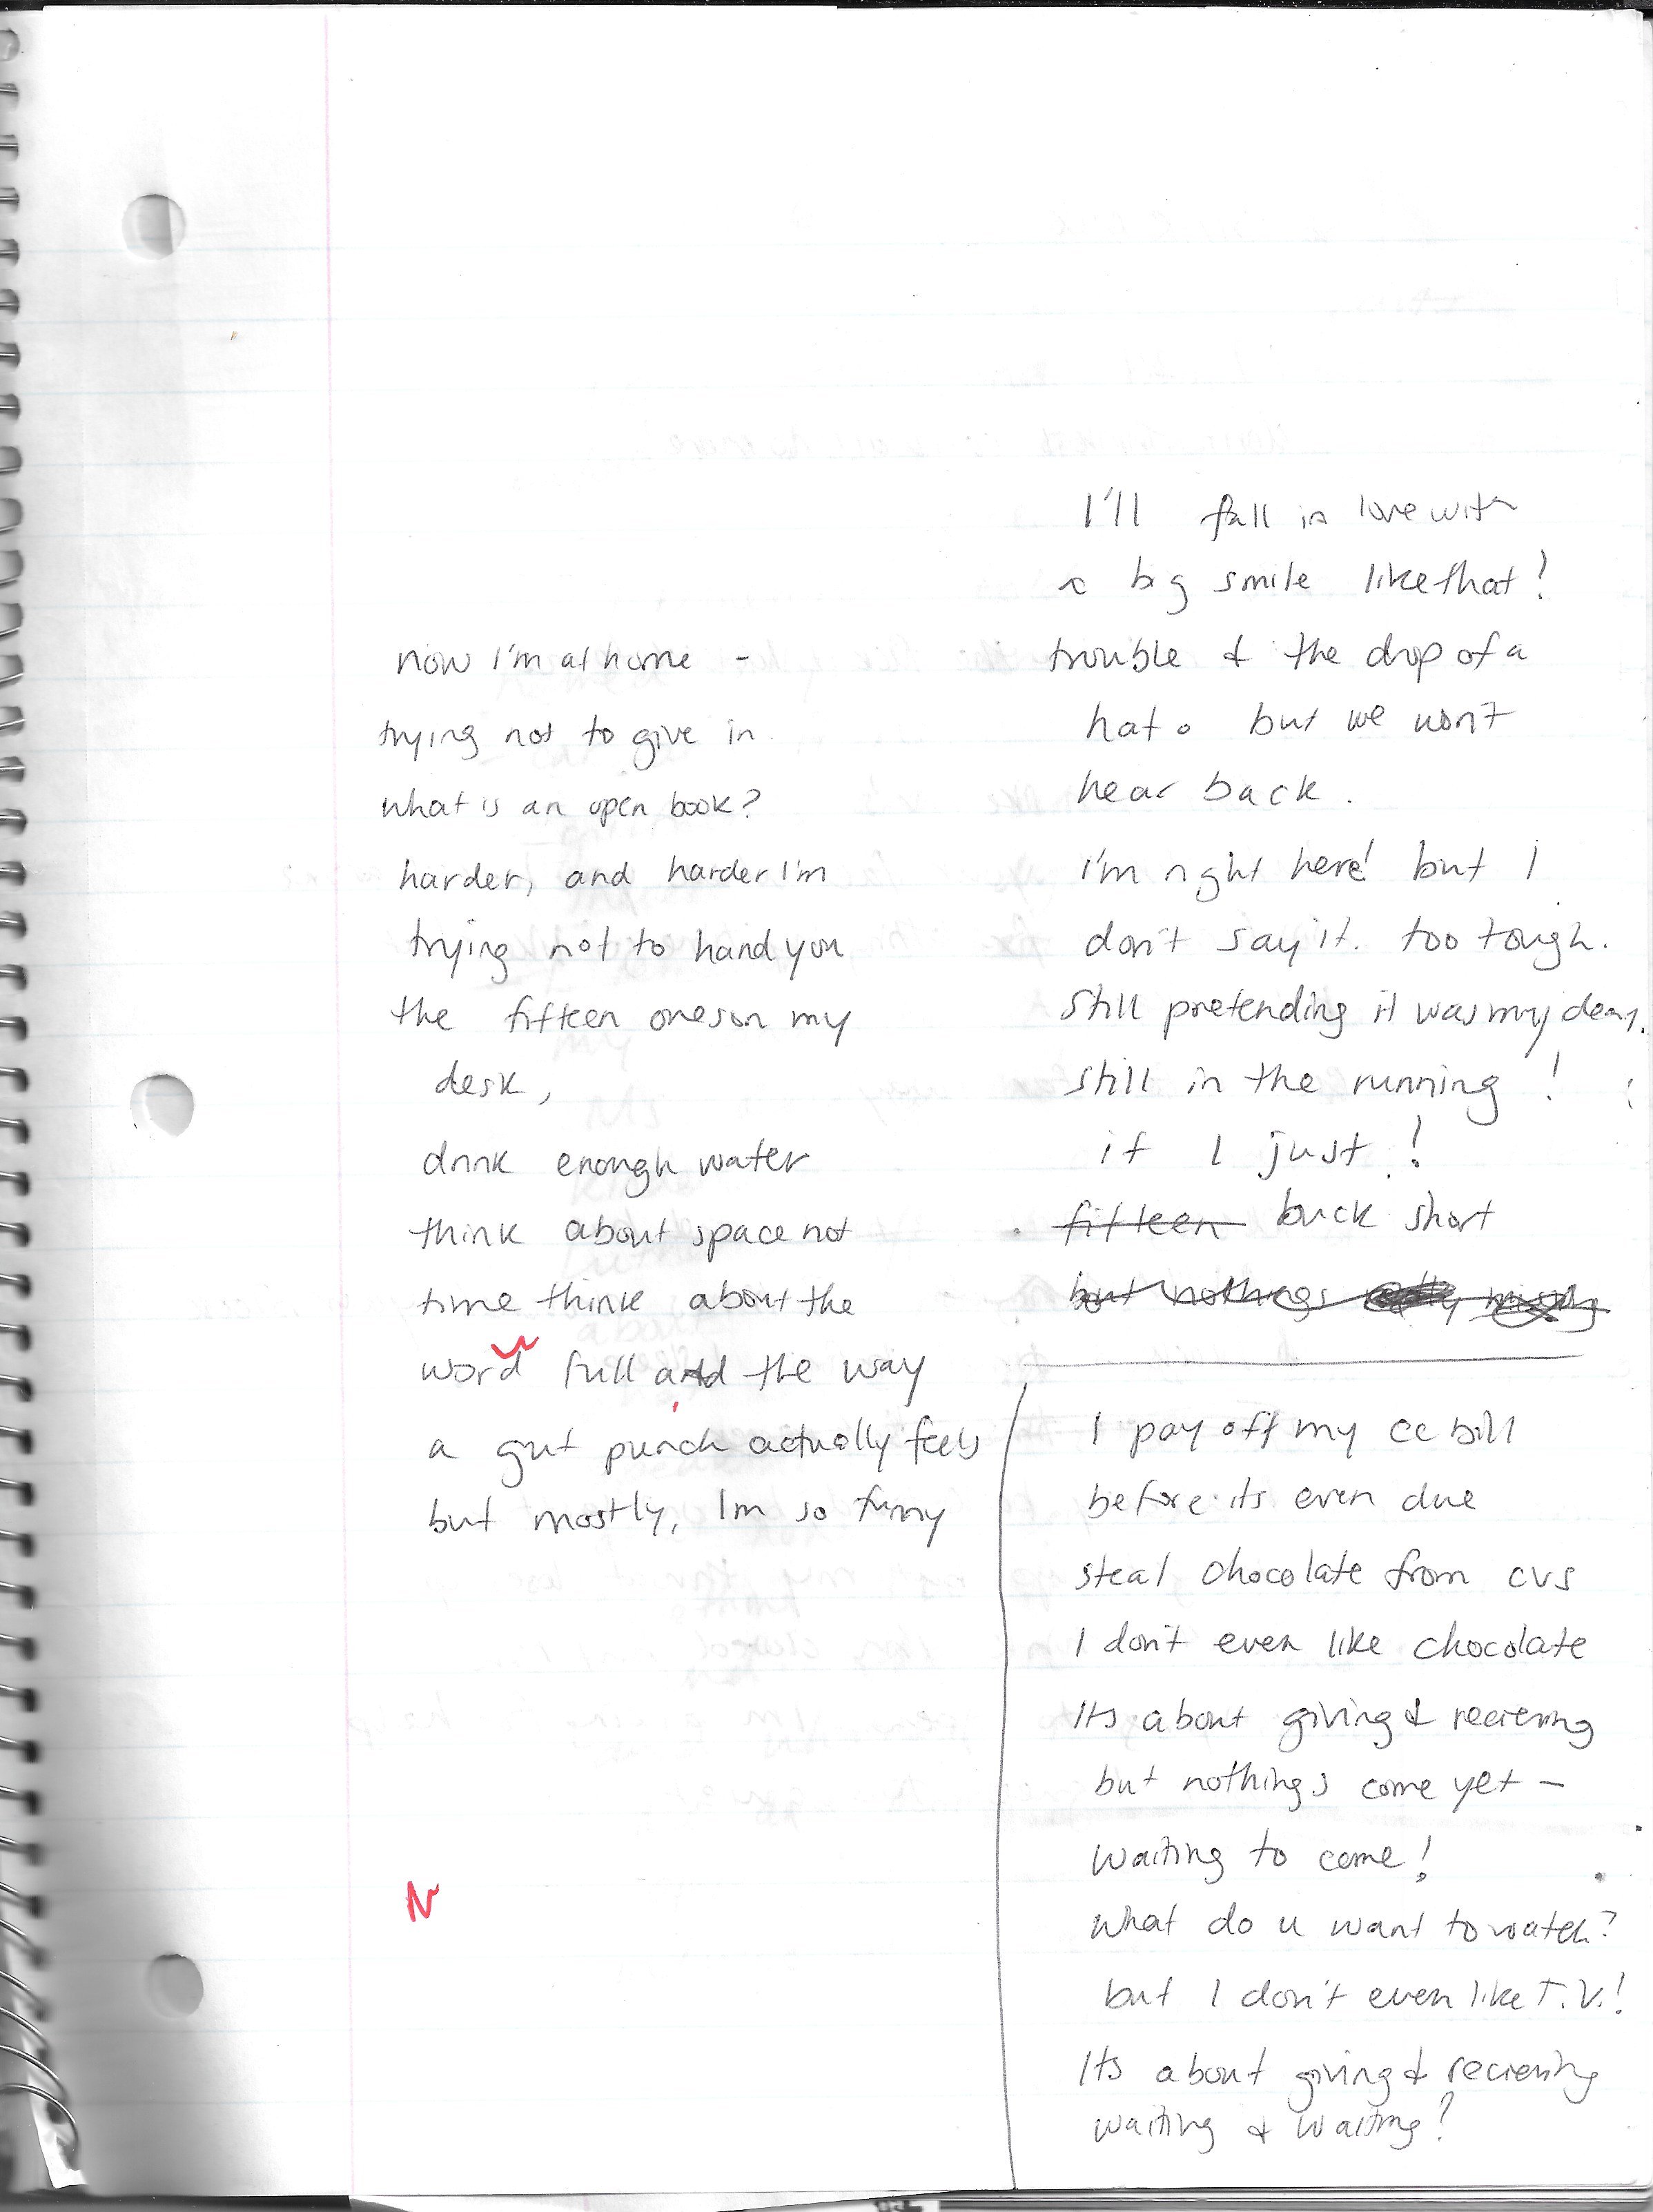 now I'm at home -
trying not to give in.
what is an open book?
harder, and harder I'm
trying not to hand you
the fifteen ones on my
desk,
drink enough water
think about space not
time think about the
word full and the way
a gut punch actually feels
but mostly, Im so funny
I'll fall in love with
a big smile like that!
trouble & the drop of a
hat. but we won't
hear back.
I'm right here! but I
don't say it. too tough.
still pretending it was my
still in the running!
if I just!
fifteen buck short
but nothings
I pay off my cc bill
before its even due
steal chocolate from cvs
I don't even like chocolate
Its about giving & recieving
but nothings come yet —
waiting to come!
what do u want to watch?
but I don't even like T.V.!
Its about giving & recieving
waiting & waiting?